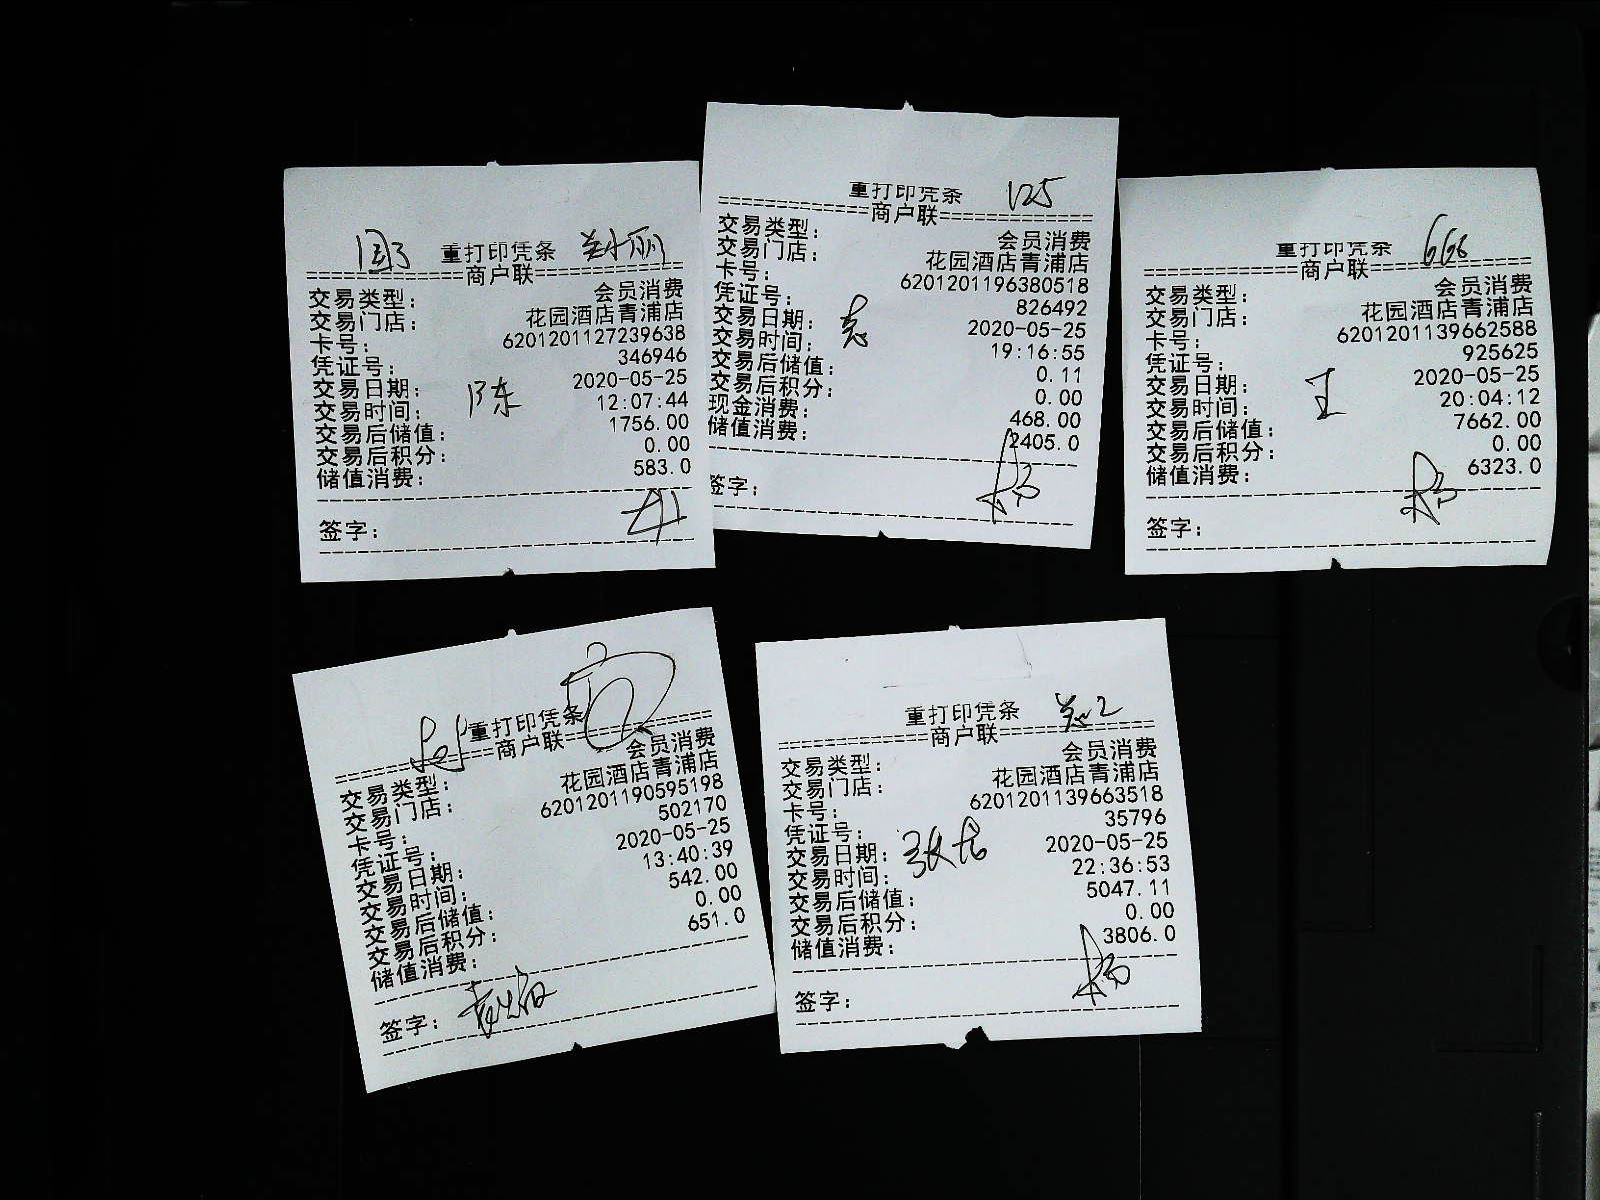 重打印凭条
============商户联============
交易类型: 会员消费
交易门店: 花园酒店青浦店
卡号: 6201201127239638
凭证号: 346946
交易日期: 2020-05-25
交易时间: 12:07:44
交易后储值: 1756.00
交易后积分: 0.00
储值消费: 583.0
陈
签字:
重打印凭条 125
============商户联============
交易类型: 会员消费
交易门店: 花园酒店青浦店
卡号: 6201201196380518
凭证号: 826492
交易日期: 2020-05-25
交易时间: 19:16:55
交易后储值: 0.11
交易后积分: 0.00
现金消费: 468.00
储值消费: 2405.0
签字:
重打印凭条 666
============商户联============
交易类型: 会员消费
交易门店: 花园酒店青浦店
卡号: 6201201139662588
凭证号: 925625
交易日期: 2020-05-25
交易时间: 20:04:12
交易后储值: 7662.00
交易后积分: 0.00
储值消费: 6323.0
王
签字:
重打印凭条
============商户联============
交易类型: 会员消费
交易门店: 花园酒店青浦店
卡号: 6201201190595198
凭证号: 502170
交易日期: 2020-05-25
交易时间: 13:40:39
交易后储值: 542.00
交易后积分: 0.00
储值消费: 651.0
签字:
重打印凭条
============商户联============
交易类型: 会员消费
交易门店: 花园酒店青浦店
卡号: 6201201139663518
凭证号: 35796
交易日期: 2020-05-25
交易时间: 22:36:53
交易后储值: 5047.11
交易后积分: 0.00
储值消费: 3806.0
签字: